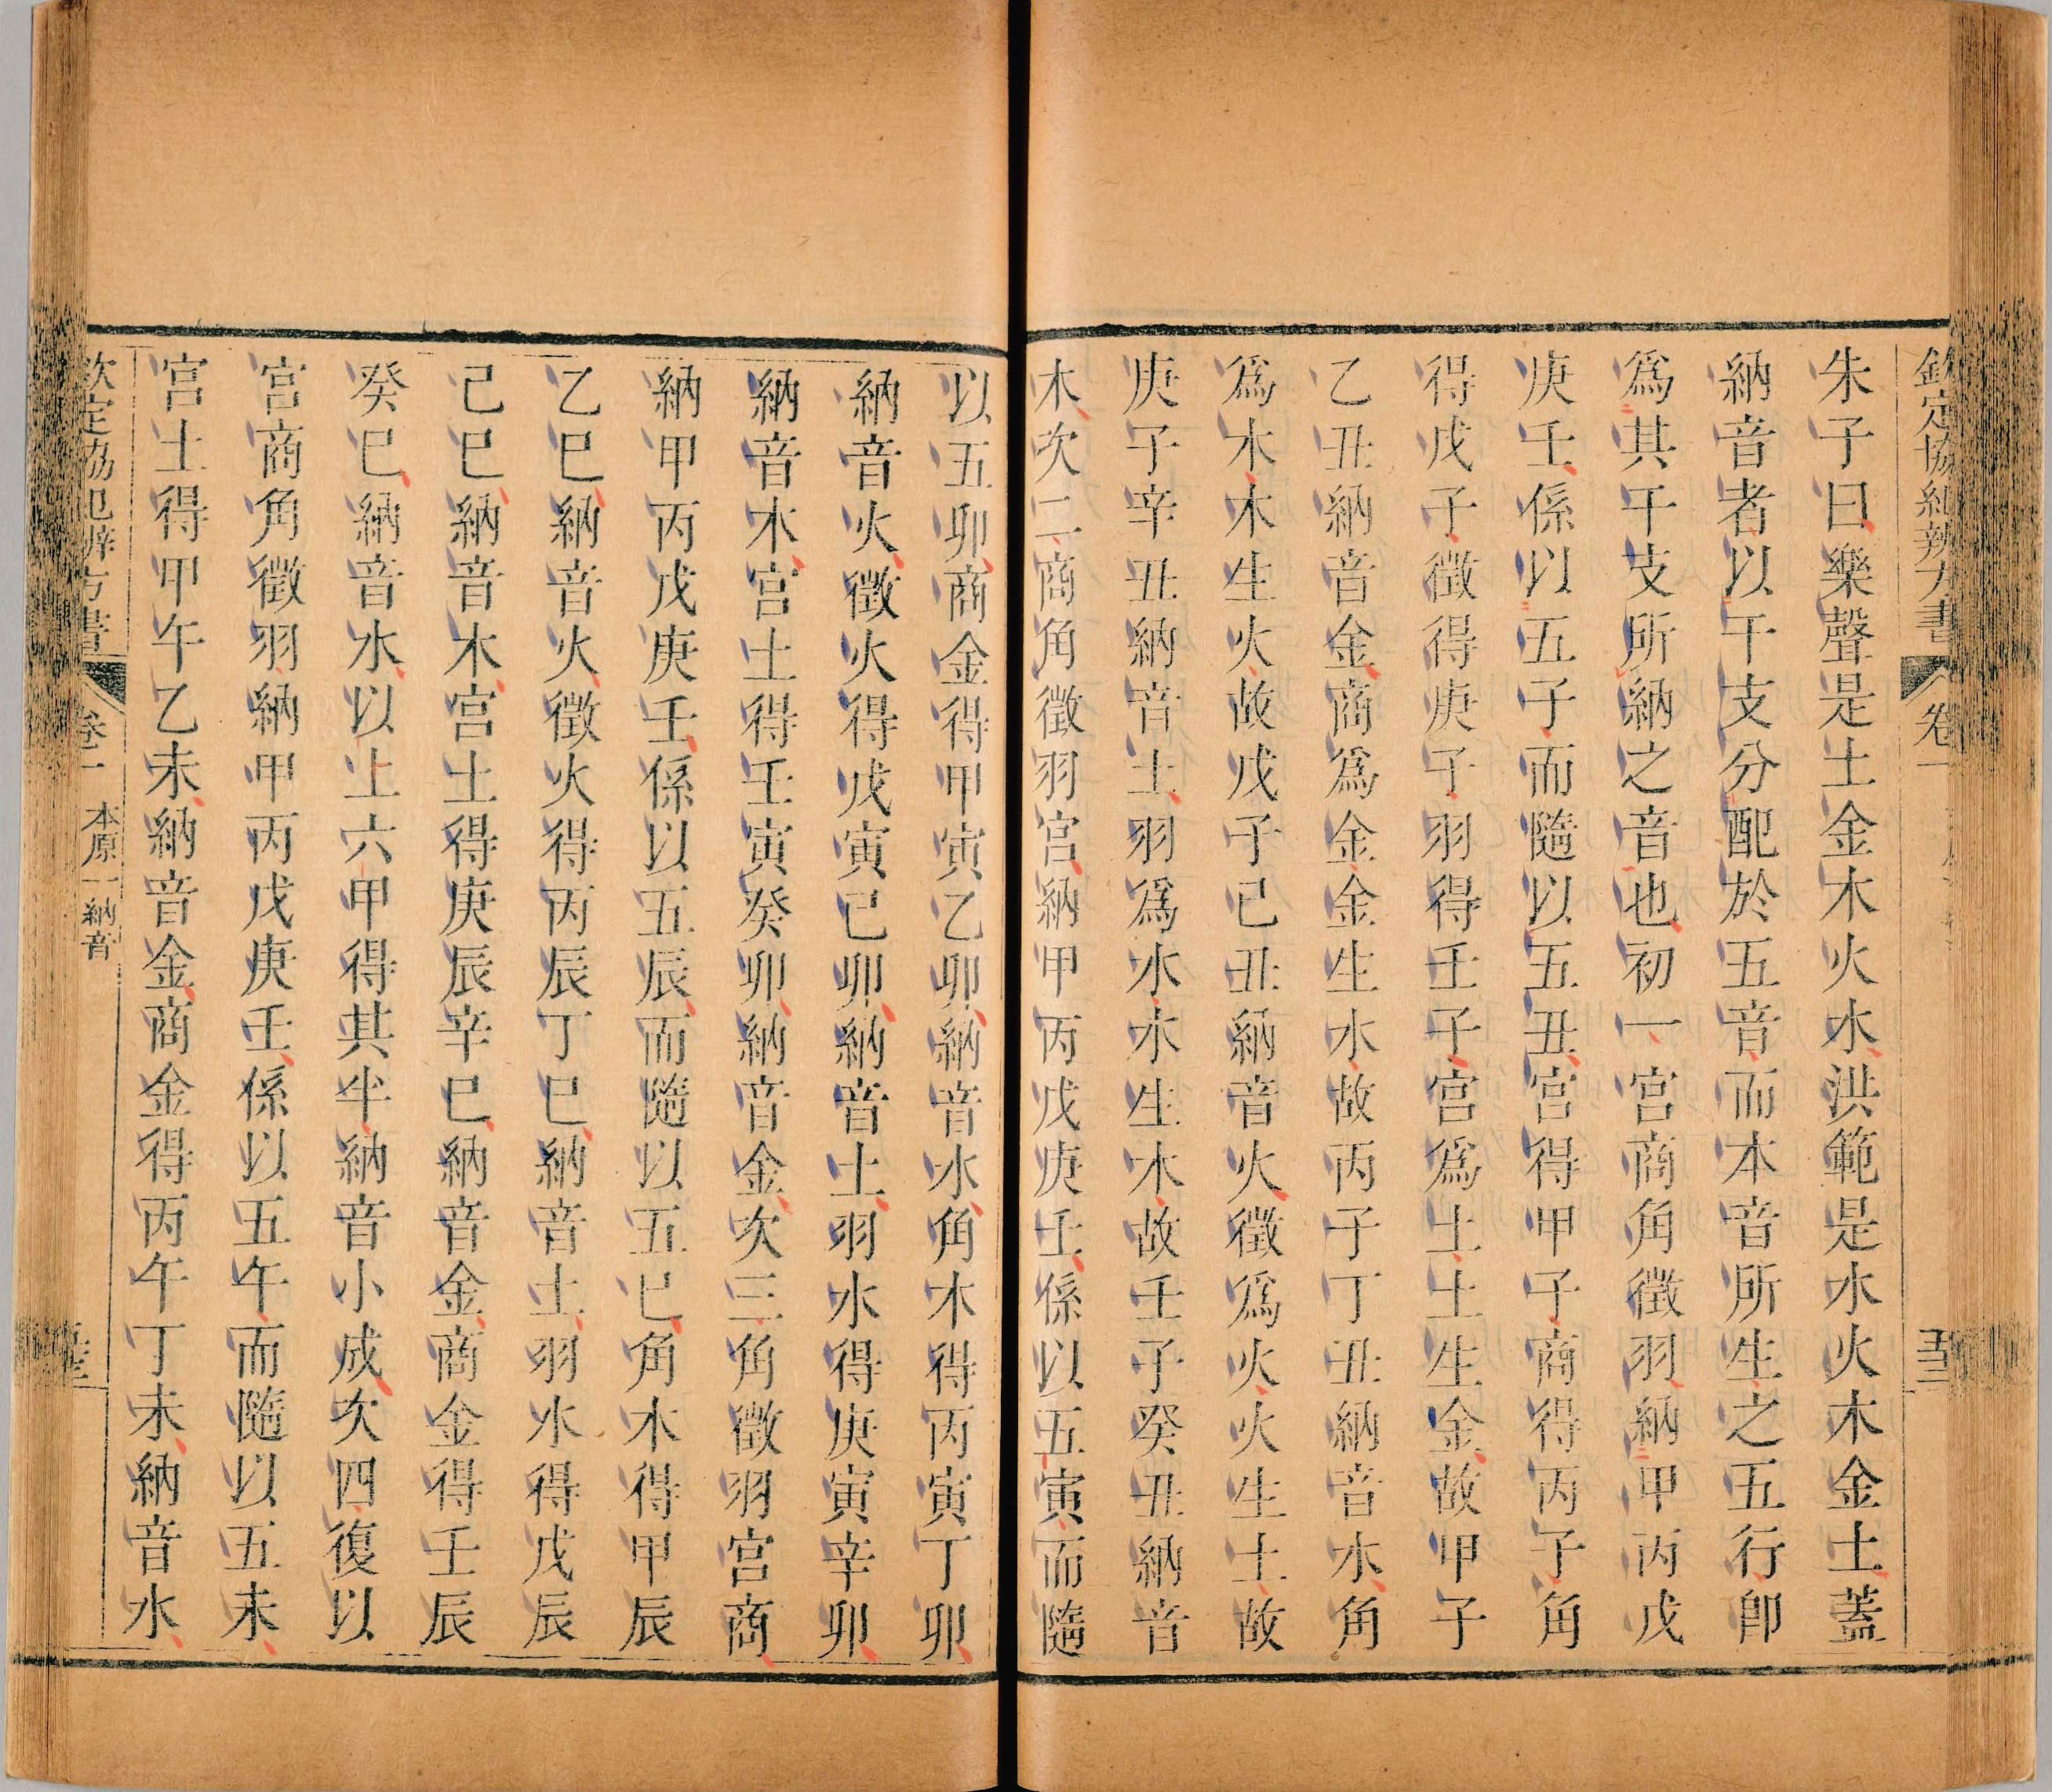 欽定協紀辨方書 卷一
朱子曰樂聲是土金木火水洪範是水火木金土蓋
納音者以干支分配於五音而本音所生之五行卽
爲其干支所納之音也初一宮商角徵羽納甲丙戊
庚壬係以五子而隨以五丑宮得甲子商得丙子角
得戊子徵得庚子羽得壬子宮爲土土生金故甲子
乙丑納音金商爲金金生水故丙子丁丑納音水角
爲木木生火故戊子己丑納音火徵爲火火生土故
庚子辛丑納音土羽爲水水生木故壬子癸丑納音
木次二商角徵羽宮納甲丙戊庚壬係以五寅而隨
以五卯商金得甲寅乙卯納音水角木得丙寅丁卯
納音火徵火得戊寅己卯納音土羽水得庚寅辛卯
納音木宮土得壬寅癸卯納音金次三角徵羽宮商
納甲丙戊庚壬係以五辰而隨以五巳角木得甲辰
乙巳納音火徵火得丙辰丁巳納音土羽水得戊辰
己巳納音木宮土得庚辰辛巳納音金商金得壬辰
癸巳納音水以上六甲得其半納音小成次四復以
宮商角徵羽納甲丙戊庚壬係以五午而隨以五未
宮土得甲午乙未納音金商金得丙午丁未納音水
欽定協紀辨方書 卷一 本原一 納音